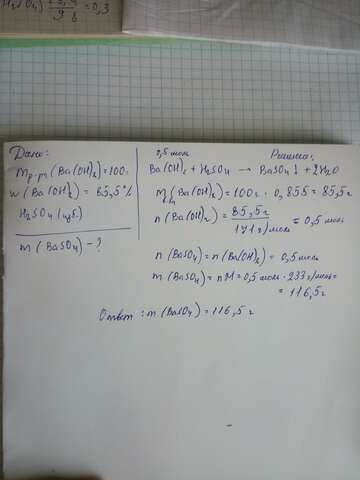 H₂SO₄) = 0,3
9 8
Дано:
m р-ра (Ba(OH)₂) = 100г
w (Ba(OH)₂) = 85,5%
H₂SO₄ (изб.)
m (BaSO₄) - ?
Решение:
0,5 моль
Ba(OH)₂ + H₂SO₄ → BaSO₄↓ + 2H₂O
m (Ba(OH)₂) = 100г · 0,855 = 85,5г
n (Ba(OH)₂) = 85,5г / 171г/моль = 0,5 моль
n (BaSO₄) = n (Ba(OH)₂) = 0,5 моль
m (BaSO₄) = nM = 0,5 моль · 233г/моль =
= 116,5г
Ответ: m (BaSO₄) = 116,5г